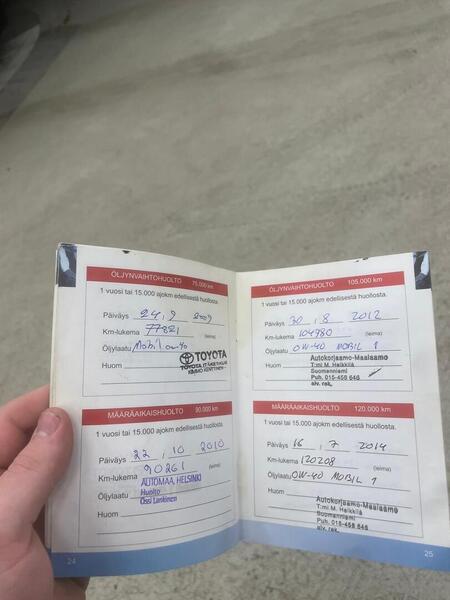 ÖLJYNVAIHTOHUOLTO 75.000 km
1 vuosi tai 15.000 ajokm edellisestä huollosta.
Päiväys 24, 9 2009
Km-lukema 77821 (leima)
Öljylaatu Mobil 0W40
TOYOTA
Huom
MÄÄRÄAIKAISHUOLTO 90.000 km
1 vuosi tai 15.000 ajokm edellisestä huollosta.
Päiväys 22, 10 2010
Km-lukema 90261 (leima)
AUTOMAA, HELSINKI
Öljylaatu Huolto
Ossi Lankinen
Huom
24
ÖLJYNVAIHTOHUOLTO 105.000 km
1 vuosi tai 15.000 ajokm edellisestä huollosta.
Päiväys 30, 8 2012
Km-lukema 104980 (leima)
Öljylaatu 0W-40 MOBIL 1
Autokorjaamo-Maalaamo
Huom T:mi M. Heikkilä
Suomenniemi
Puh. 015-458 646
alv. rek.
MÄÄRÄAIKAISHUOLTO 120.000 km
1 vuosi tai 15.000 ajokm edellisestä huollosta.
Päiväys 16, 7 2014
Km-lukema 120208 (leima)
Öljylaatu 0W-40 MOBIL 1
Huom
Autokorjaamo-Maalaamo
T:mi M. Heikkilä
Suomenniemi
Puh. 015-458 646
alv. rek.
25